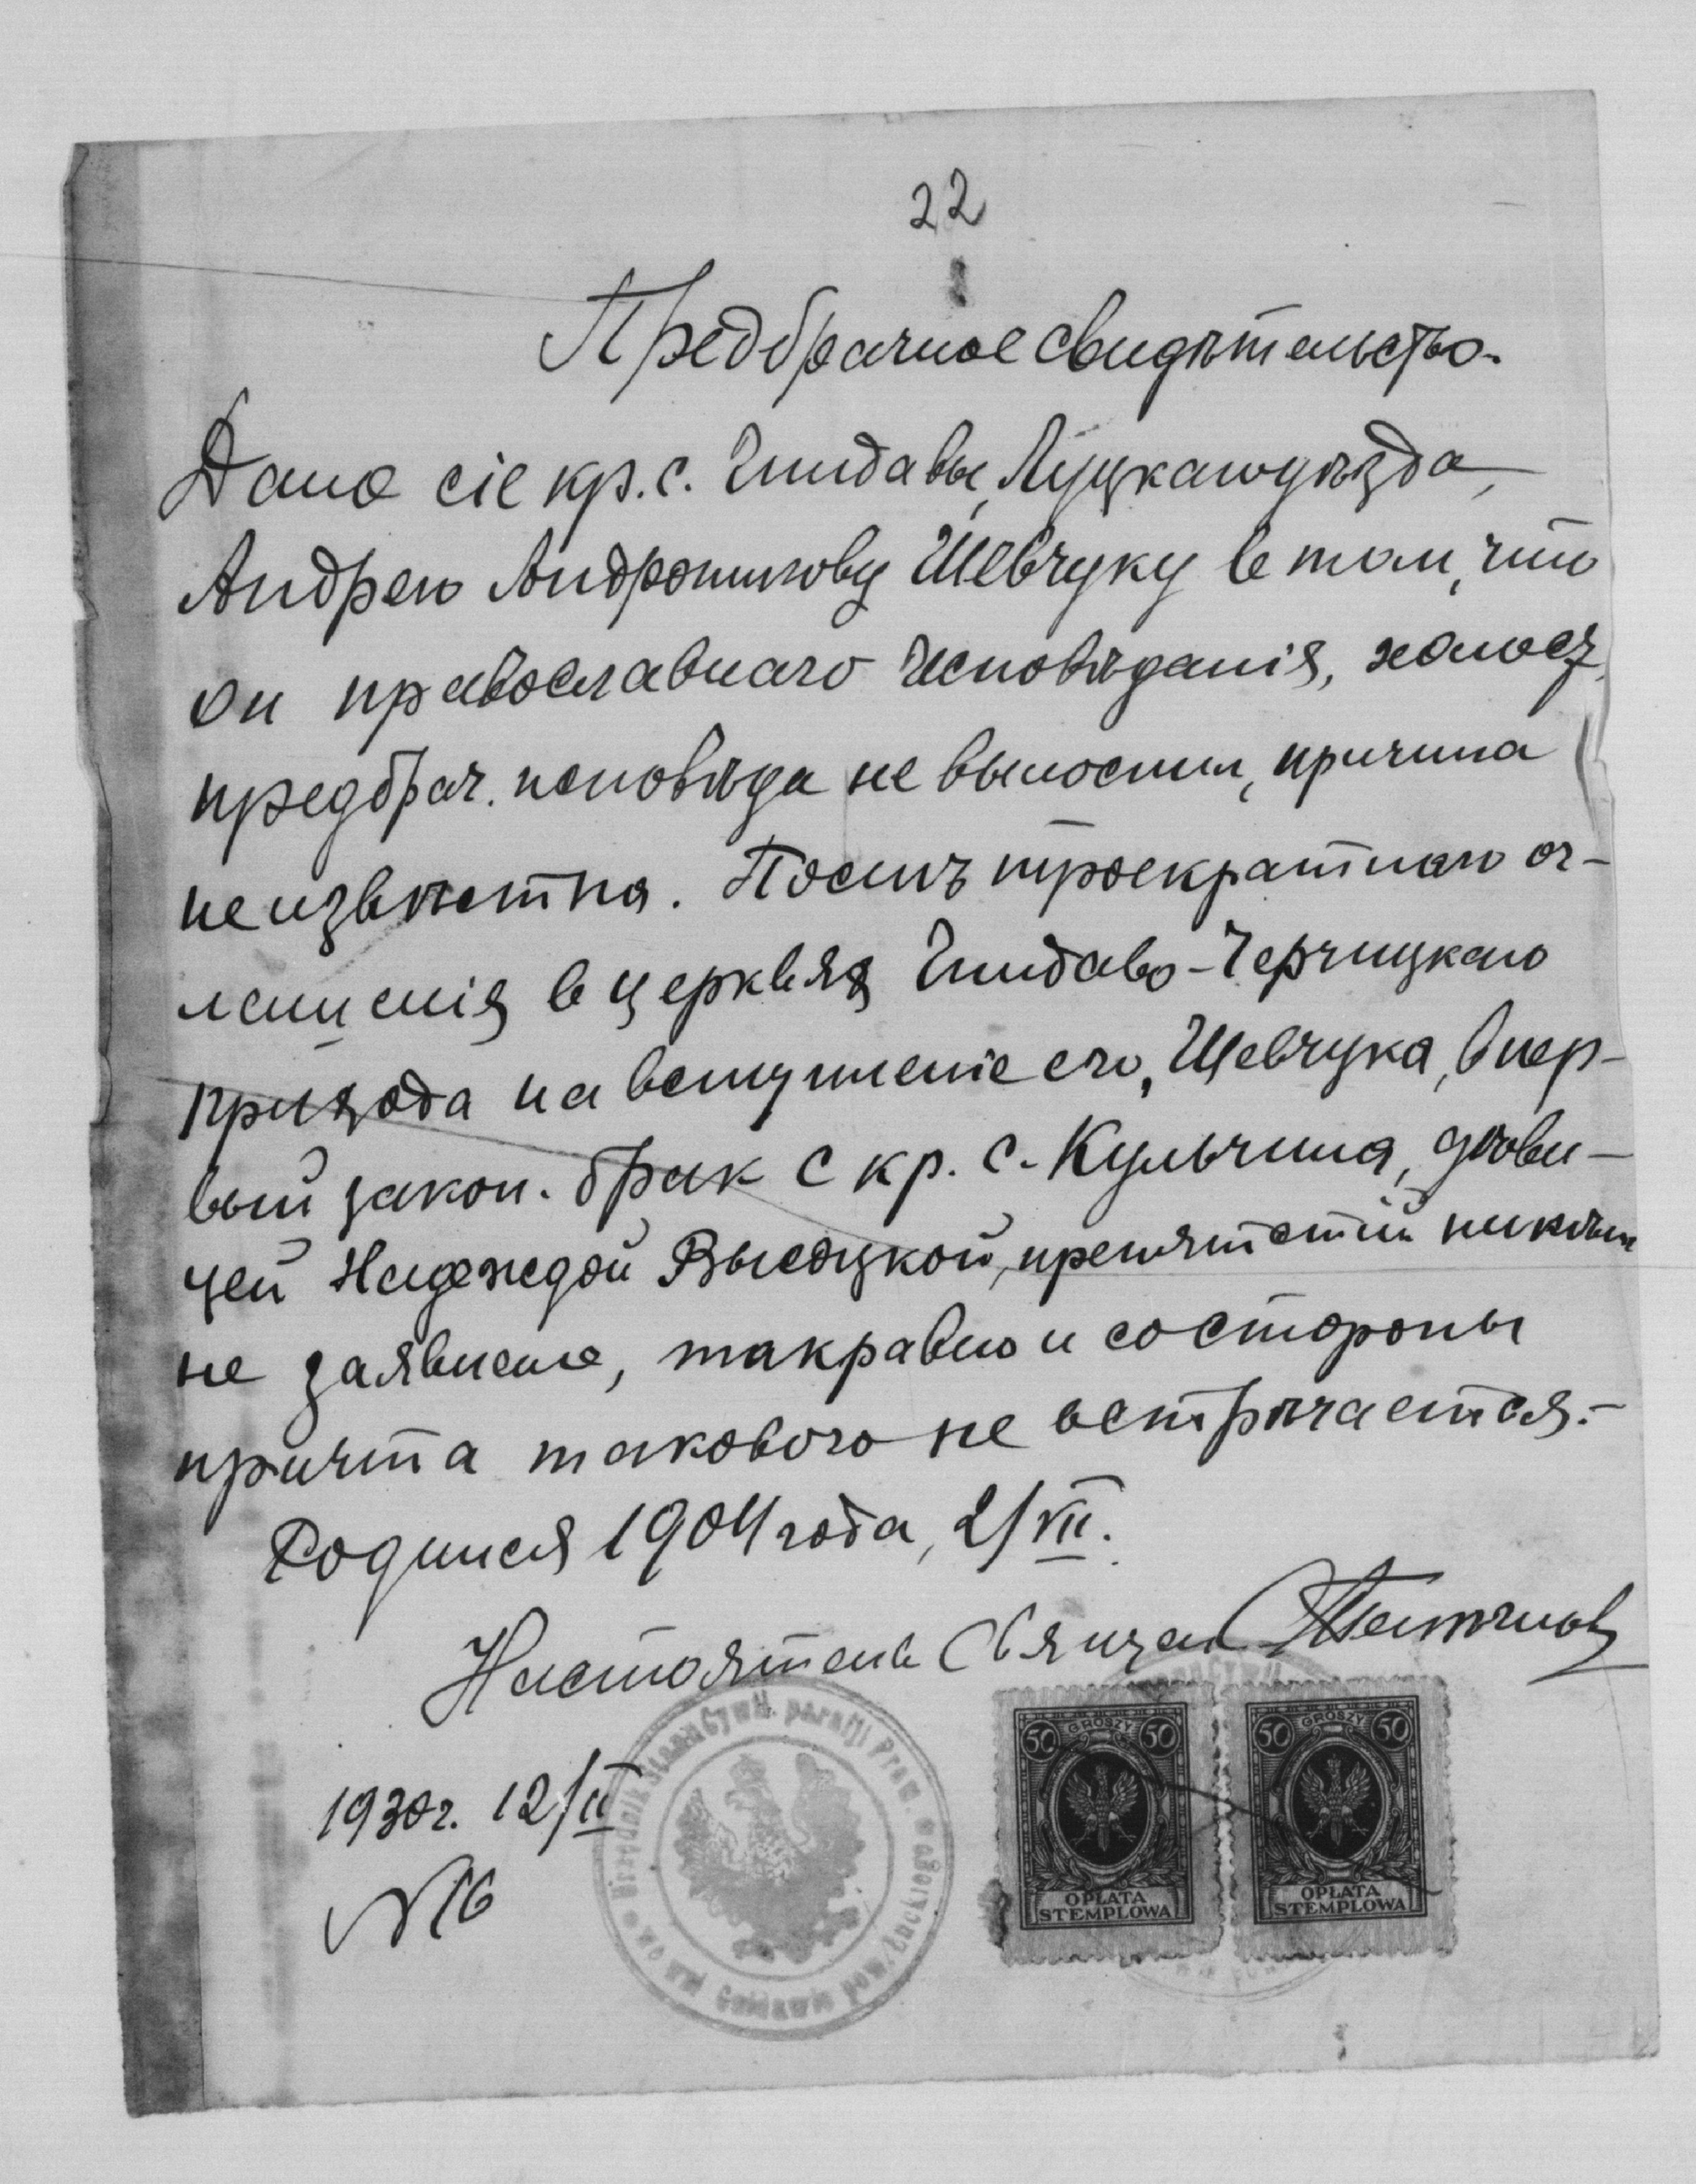 22
Предбрачное свидѣтельство.
Дано сіе кр. с. Гнидавы, Луцкаго уѣзда,
Андрею Андроникову Шевчуку в том, что
он православнаго исповѣданія, холост,
предбрач. исповѣди не выполнил, причина
неизвѣстна. Послѣ троекратнаго ог-
лашенія в церквях Гнидаво-Черчицкаго
прихода на вступленіе его, Шевчука, в пер-
вый закон. брак с кр. с. Кульчина, дѣви-
цей Надеждой Высоцкой, препятствій никѣм
не заявлено, так равно и со стороны
причта такового не встрѣчается.-
Родился 1904 года, 2/VII.
Настоятель Священ.
1930 г. 12/II
N 16
Urzędnik Stanu Cywil. parafji Praw.
we wsi Gnidawie pow. Łuckiego
50 GROSZY 50
OPŁATA
STEMPLOWA
50 GROSZY 50
OPŁATA
STEMPLOWA